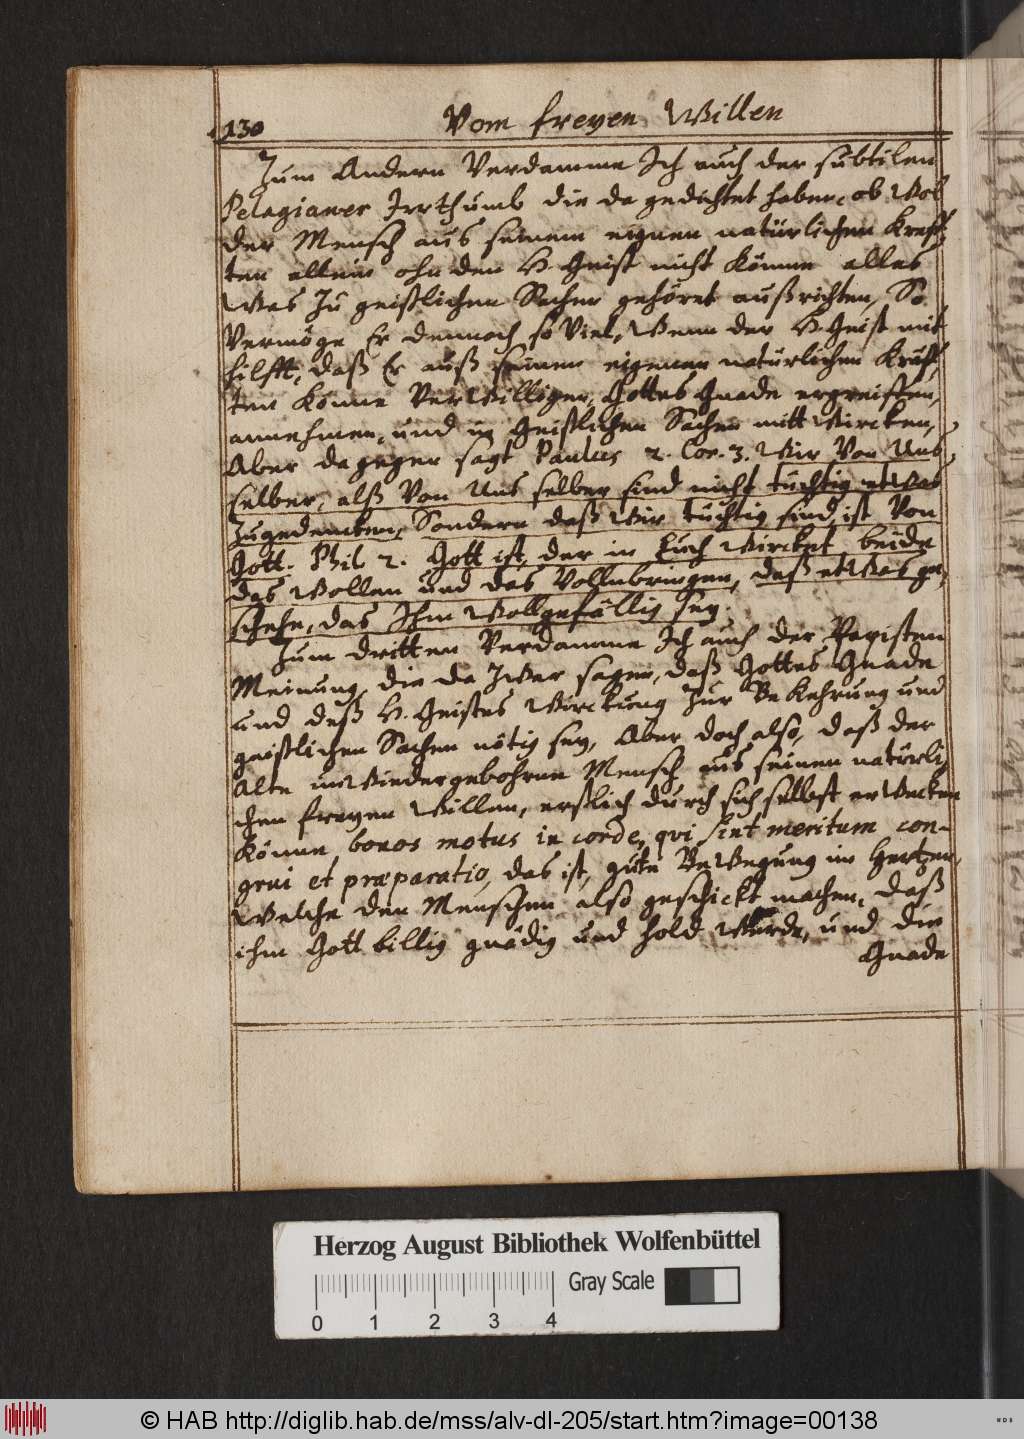 130
Vom freyen Willen
Zum Andern Verdamme Ich auch der subtilen
Pelagianer Irrthumb die da gedichtet haben, ob Wol
der Mensch aus seinem eignen natürlichen Kreff,
ten allein ohn den H. Geist nicht könne alles
Was zu geistlichen Sachen gehöret außrichten, So
Vermöge Er dennoch so Viel, Wenn der H. Geist mit
hilfft, daß Er auß seinen eigenen natürlichen Kräff,
ten könne VerWilligen, Gottes Gnade ergreiffen,
annehmen, und in Geistlichen Sachen mitt Wircken,
Aber dagegen sagt Paulus 2. Cor. 3. Wir Von Uns
selber, alß Von Uns selber sind nicht tüchtig etWas
zugedencken, Sondern daß Wir tüchtig sind, ist Von
Gott. Phil 2. Gott ist, der in Euch Wircket beide
das Wollen und das Vollnbringen, daß etWas ge,
schehe, das Ihm Wollgefällig sey.
Zum dritten Verdamme Ich auch der Papisten
Meinung, die da zWar sagen, daß Gottes Gnade
und deß H. Geistes Wirckung zur BeKehrung und
geistlichen Sachen nötig sey, Aber doch also, daß der
Alte unWiedergebohrne Mensch aus seinen natürli,
chen freyen Willen, erstlich durch sich selbst erWecken
könne bonos motus in corde, qvi sint meritum con-
grui et præparatio, das ist, gute BeWegung im Hertzen,
Welche den Menschen also geschickt machen, daß
ihm Gott billig gnädig und hold Werde, und die
Gnade
Herzog August Bibliothek Wolfenbüttel
Gray Scale
0 1 2 3 4
© HAB http://diglib.hab.de/mss/alv-dl-205/start.htm?image=00138
WDB